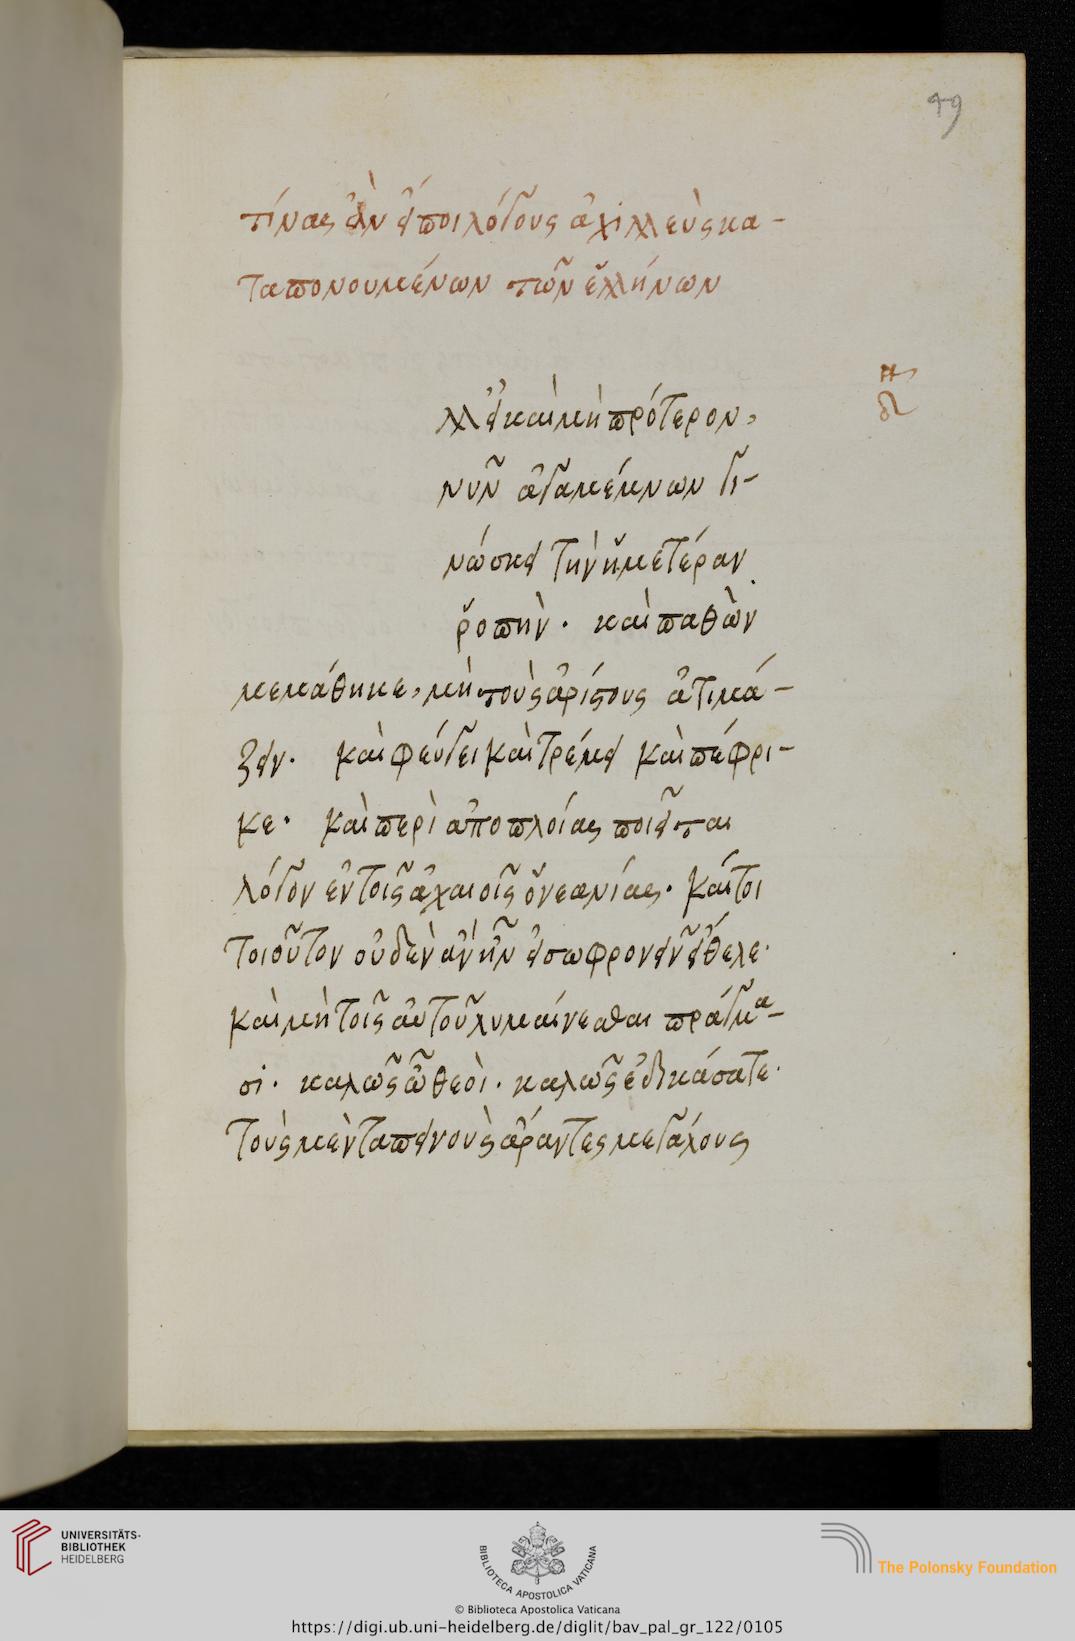 49
τίνας ἂν εἴποι λόγους ἀχιλλεὺς κα-
ταπονουμένων τῶν ἑλλήνων
λλ' εἰ καὶ μὴ πρότερον,
νῦν ἀγαμέμνων γι-
νώσκει τὴν ἡμετέραν
ῥοπὴν. καὶ παθὼν
μεμάθηκε, μὴ τοὺς ἀρίστους ἀτιμά-
ζειν. καὶ φεύγει καὶ τρέμει καὶ πέφρι-
κε. καὶ περὶ ἀποπλοίας ποιεῖται
λόγον ἐν τοῖς ἀχαιοῖς ὁ νεανίας. καίτοι
τοιοῦτον οὐδὲν ἂν ἦν εἰ σωφρονεῖν ἤθελε.
καὶ μὴ τοῖς αὐτοῦ λυμαίνεσθαι πράγμα-
σι. καλῶς ὦ θεοὶ. καλῶς ἐδικάσατε.
τοὺς μὲν ταπεινοὺς ἄραντες μεγάλους
UNIVERSITÄTS-
BIBLIOTHEK
HEIDELBERG
BIBLIOTECA APOSTOLICA VATICANA
The Polonsky Foundation
© Biblioteca Apostolica Vaticana
https://digi.ub.uni-heidelberg.de/diglit/bav_pal_gr_122/0105